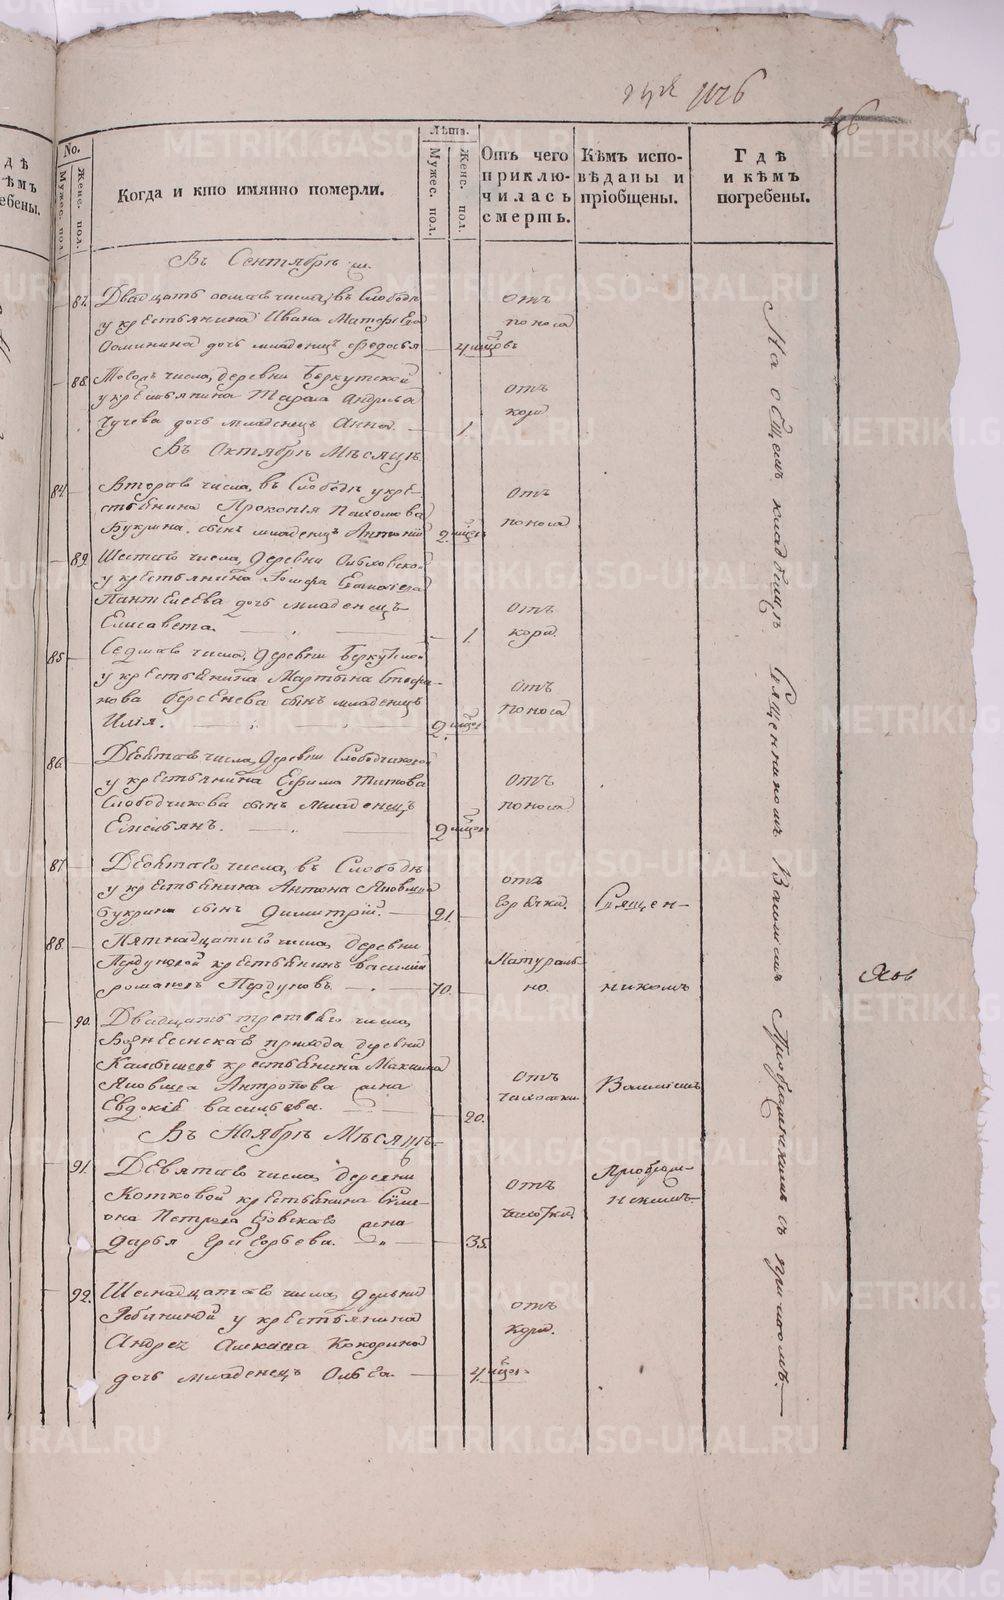 1126
46
No.
Мужес. пол.
Женс. пол.
Когда и кто имянно померли.
Лѣта.
Мужес. пол.
Женс. пол.
Отъ чего
приклю-
чилась
смерть.
Кѣмъ испо-
вѣданы и
пріобщены.
Гдѣ
и кѣмъ
погребены.
Въ Сентябрѣ
87. Двадцать числа, въ Слободѣ
у крестьянина Ивана Матфеева
дочь младенецъ Федосья 4 мцовъ
отъ
поноса
88. числа, деревни Беркутской
у крестьянина Тараса Андреева
Чучева дочь младенецъ Анна. 1.
отъ
кори
Въ Октябрѣ Мѣсяцѣ
84. Втораго числа, въ Слободѣ у кре-
стьянина Прокопія Пахомова
Букрина сынъ младенецъ Антоній 2 мцев
отъ
поноса
89. Шестаго числа, деревни
у крестьянина
Пантелеева дочь младенецъ
Елисавета. 1.
отъ
кори.
85. Седмаго числа, деревни Беркутской
у крестьянина Мартына Стефа-
нова Берсенева сынъ младенецъ
Илія. 2 мцев
отъ
поноса
86. Девятаго числа, деревни Слободчиковой
у крестьянина Ефима Титова
Слободчикова сынъ младенецъ
Емельянъ. 2 мцев
отъ
поноса
87. Девятаго числа, въ Слободѣ
у крестьянина Антона Яковлева
Букрина сынъ Димитрій. 21.
отъ
горячки.
Священ-
88. Пятнадцатаго числа, деревни
Пердуновой крестьянинъ Василій
Романовъ Пердуновъ. 70.
Натураль-
но.
никомъ
90. Двадцать третьяго числа,
Вознесенскаго прихода деревни
крестьянина Максима
Яковлева Антропова жена
Евдокія Васильева. 20.
отъ
чахотки.
Въ Ноябрѣ Мѣсяцѣ
91. Девятаго числа, деревни
Котковой крестьянина Симе-
она Петрова жена
Дарья Григорьева. 35.
отъ
чахотки.
92. Шеснадцатаго числа, деревни
Рябининой у крестьянина
Андрея Алексева Кокорина
дочь младенецъ Ольга. 4 мцев
отъ
кори.
На общемъ кладбищѣ Священникомъ съ причтомъ.
METRIKI.GASO-URAL.RU